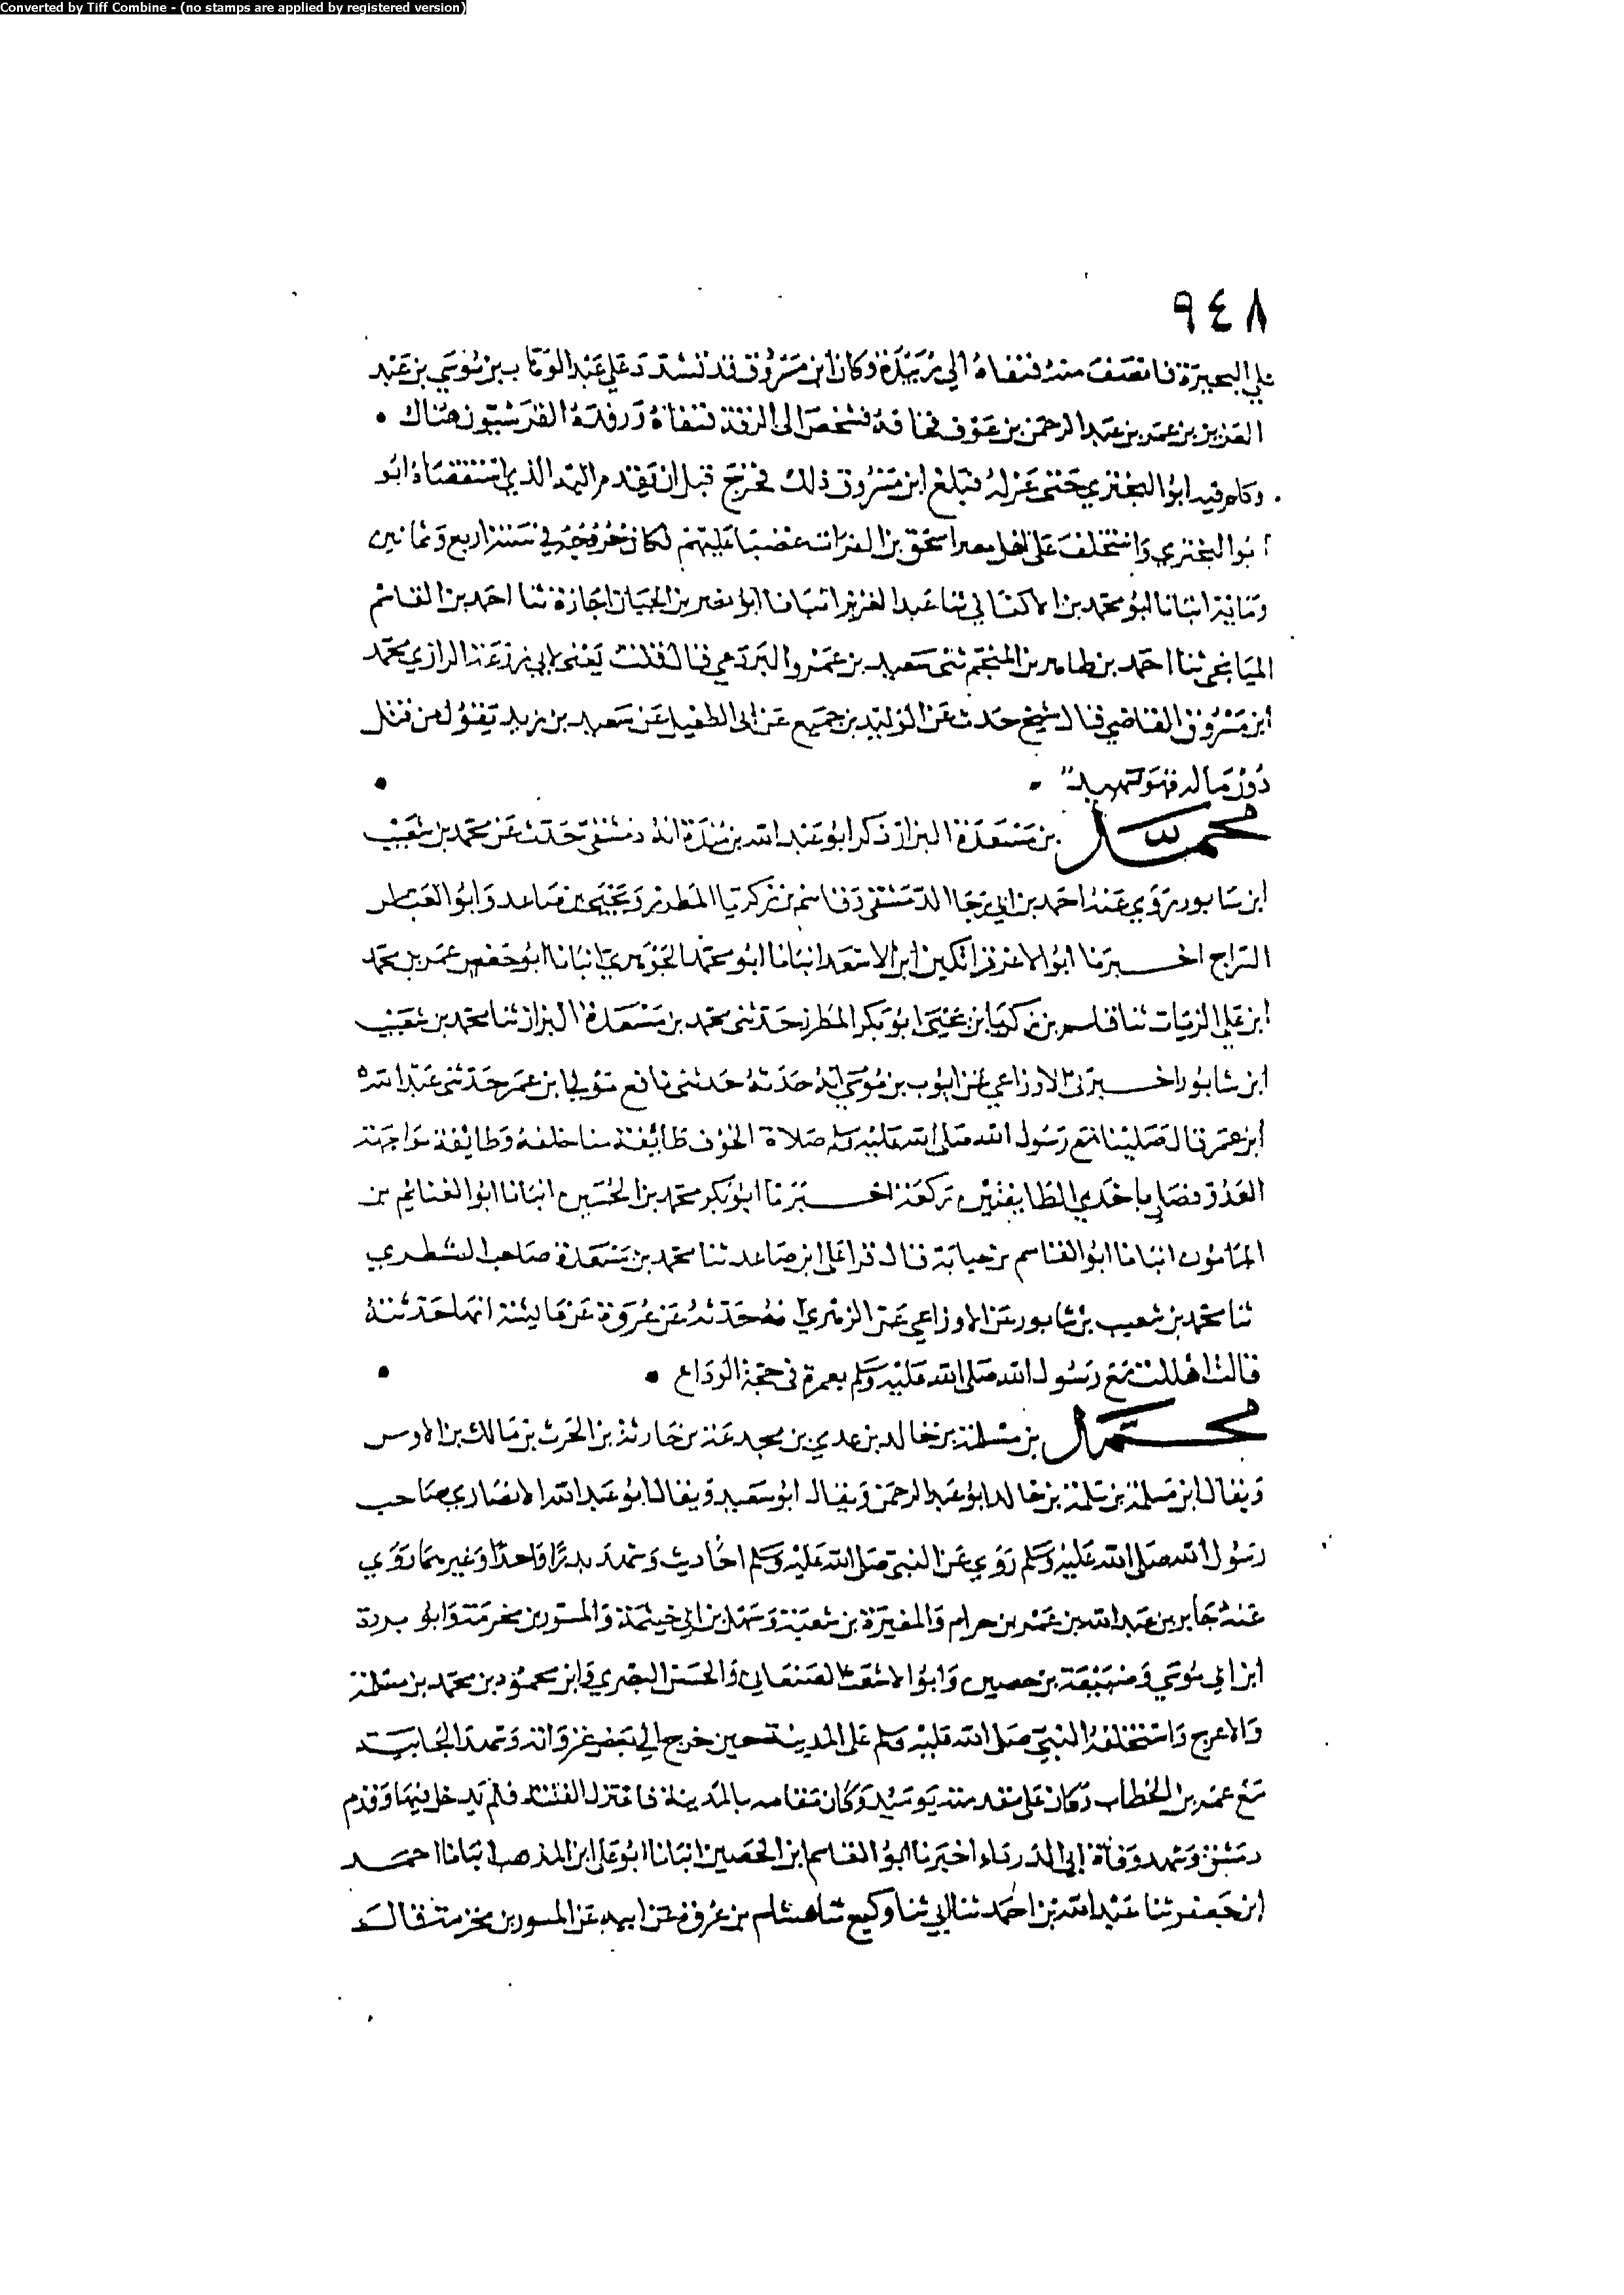 Converted by Tiff Combine - (no stamps are applied by registered version)
٩٤٨
على البحيرة فانتصف منه فنفاه الى وكان ابن مسروق قد تشدد على عبد الوهاب بن موسى بن عبد
العزيز بن عمر بن عبد الرحمن بن عوف فخافه فشخص الى الرقة ورفده القرشيون هناك
وكلم فيه ابو البختري حتى عزله فبلغ ابن مسروق ذلك فخرج قبل ان يقدم اليه الذي استقضاه ابو
ابو البختري واستخلف على اهل مصر اسحق بن الفرات غضبا عليهم لكان خروجه في سنة اربع وثمانين
ومائة انبانا ابو محمد بن الاكفاني ثنا عبد العزيز انبانا ابو نصر بن الجبان اجازة ثنا احمد بن القاسم
الميانجي ثنا احمد بن طاهر بن المنجم ثنى سعيد بن عمرو البردعي قال قلت يعنى لابي زرعة الرازي محمد
ابن مسروق القاضي قال شيخ حدث عن الوليد بن جميع عن ابى الطفيل عن سعيد بن زيد يقول من قتل
دون ماله فهو شهيد
محمد بن مسعدة البزاز ذكر ابو عبد الله بن مندة انه دمشقي حدث عن محمد بن شعيب
ابن شابور روى عنه احمد بن ابي رجا الدمشقي وقاسم بن زكريا المطرز ويحيى بن صاعد وابو العباس
السراج اخبرنا ابو الاعز قراتكين ابن الاسعد انبانا ابو محمد الجوهري انبانا ابو حفص عمر بن محمد
ابن علي الزيات ثنا قاسم بن زكريا بن يحيى ابو بكر المطرز حدثنى محمد بن مسعدة البزاز ثنا محمد بن شعيب
ابن شابور اخبرنى الاوزاعي عن ايوب بن موسى انه حدثه حدثنى نافع مولى ابن عمر حدثنى عبد الله
ابن عمر قال صلينا مع رسول الله صلى الله عليه وسلم صلاة الخوف طائفة منا خلفه وطائفة مواجهة
العدو فصلى باحدى الطايفتين ركعة اخبرنا ابو بكر محمد بن الحسين انبانا ابو الغنايم بن
المامون انبانا ابو القاسم بن حبابة قال قرا على ابن صاعد ثنا محمد بن مسعدة صاحب الشطري
ثنا محمد بن شعيب بن شابور عن الاوزاعي عن الزهري حدثه عن عروة عن عايشة انها حدثته
قالت اهللت مع رسول الله صلى الله عليه وسلم بعمرة فى حجة الوداع
محمد بن مسلمة بن خالد بن عدي بن مجدعة بن حارثة بن الحرث بن مالك بن الاوس
ويقال ابن مسلمة بن سلمة بن خالد ابو عبد الرحمن ويقال ابو سعيد ويقال ابو عبد الله الانصاري صاحب
رسول الله صلى الله عليه وسلم روى عن النبي صلى الله عليه وسلم احاديث وشهد بدرا واحدا وغيرهما روى
عنه جابر بن عبد الله بن عمرو بن حرام والمغيرة بن شعبة وسهل بن ابي خيثمة والمسور بن مخرمة وابو بردة
ابن ابي موسى وضبيعة بن حصين وابو الاشعث الصنعاني والحسن البصري وابن محمود بن محمد بن مسلمة
والاعرج واستخلفه النبي صلى الله عليه وسلم على المدينة حين خرج الى بعض غزواته وشهد الجابية
مع عمر بن الخطاب وكان على مقدمته يومئذ وكان مقامه بالمدينة فاعتزل الفتنة فلم يدخل فيها وقدم
دمشق وشهد وفاة ابى الدرداء اخبرنا ابو القاسم ابن الحصين انبانا ابو على ابن المذهب انبانا احمد
ابن جعفر ثنا عبد الله بن احمد ثنا ابي ثنا وكيع ثنا هشام بن عروة عن ابيه عن المسور بن مخرمة قال